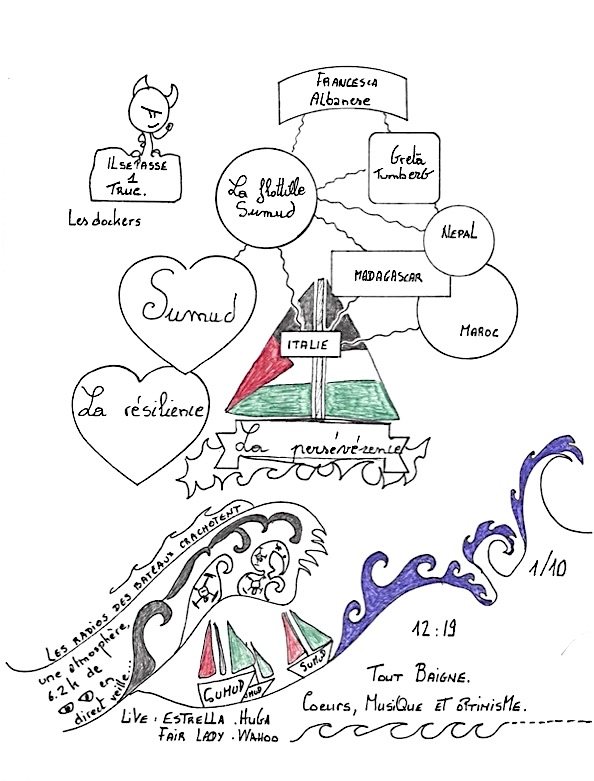 FRANCESCA
Albanese
Gretā
TumberG
IL SE PASSE
1
TRUC.
Les dockers
La flottille
Sumud
NEPAL
MADAGASCAR
MAROC
ITALIE
Sumud
La résilience
La persévérence
LES RADIOS DES BATEAUX CRACHOTENT
une atmosphère,
6.2k de
en
direct veille...
1/10
12:19
SUMUD
MUD
SUMUD
TOUT BAIGNE.
COEURS, MUSIQUE ET OPTIMISME.
LIVE. ESTRELLA. HUGA
FAIR LADY. WAHOO